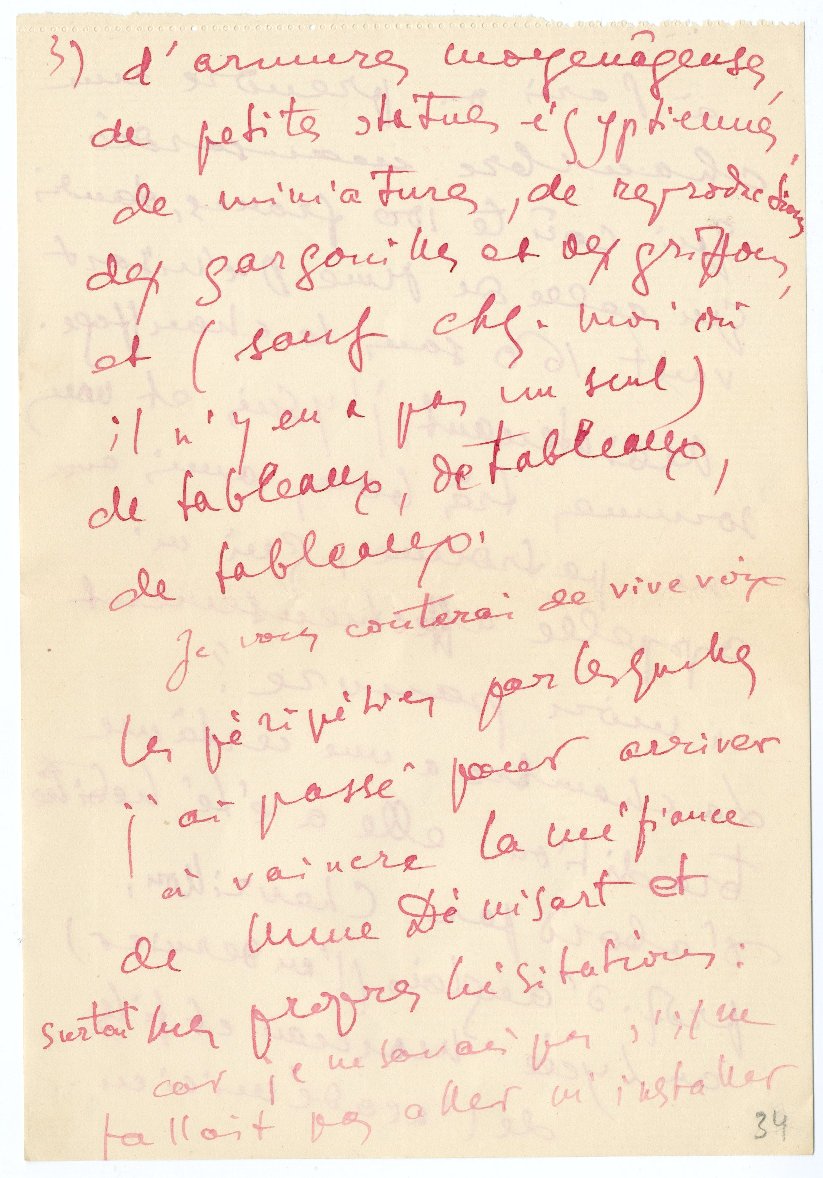 3) d'armures moyenâgeuses,
de petites statues égyptiennes,
de miniatures, de reproductions
des gargouilles et des griffons,
et (sauf chez moi où
il n'y en a pas un seul)
de tableaux, de tableaux,
de tableaux.
Je vous conterai de vive voix
les péripéties par lesquelles
j'ai passé pour arriver
à vaincre la méfiance
de Mme Dénisart et
surtout mes propres hésitations :
car je ne savais pas s'il ne
fallait pas aller m'installer
34